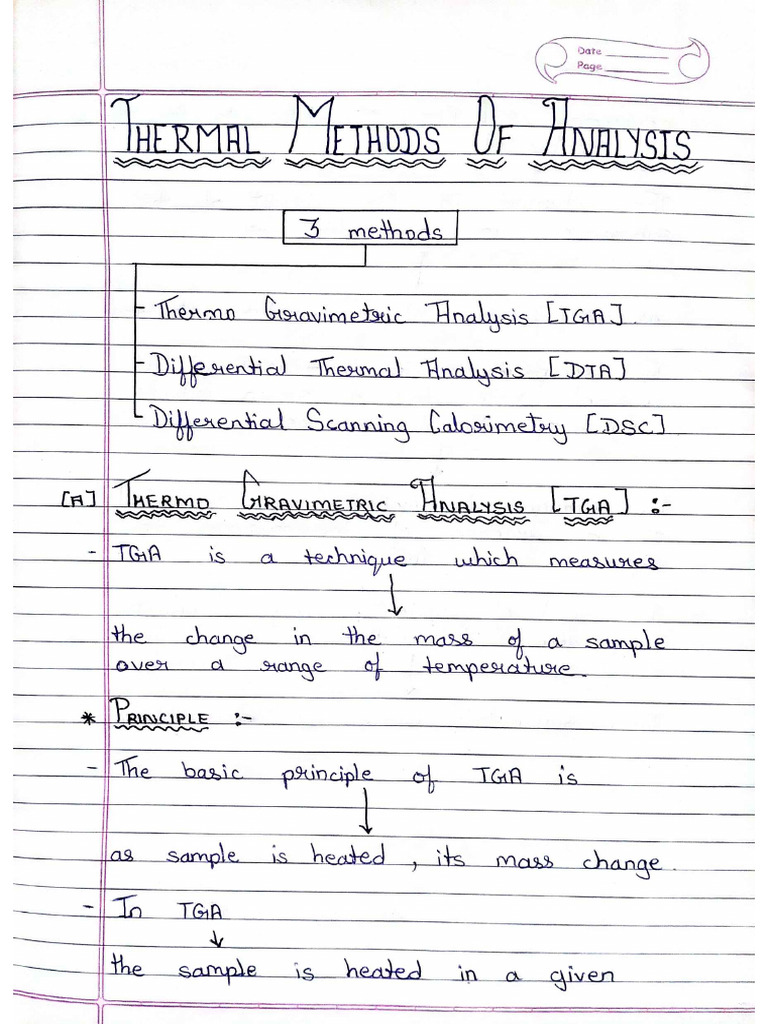 Date
Page
THERMAL METHODS OF ANALYSIS
3 methods
Thermo Gravimetric Analysis [TGA].
Differential Thermal Analysis [DTA]
Differential Scanning Calorimetry [DSC]
[A] THERMO GRAVIMETRIC ANALYSIS [TGA] :-
- TGA is a technique which measures
↓
the change in the mass of a sample
over a range of temperature.
* PRINCIPLE :-
- The basic principle of TGA is
↓
as sample is heated, its mass change.
- In TGA
↓
the sample is heated in a given